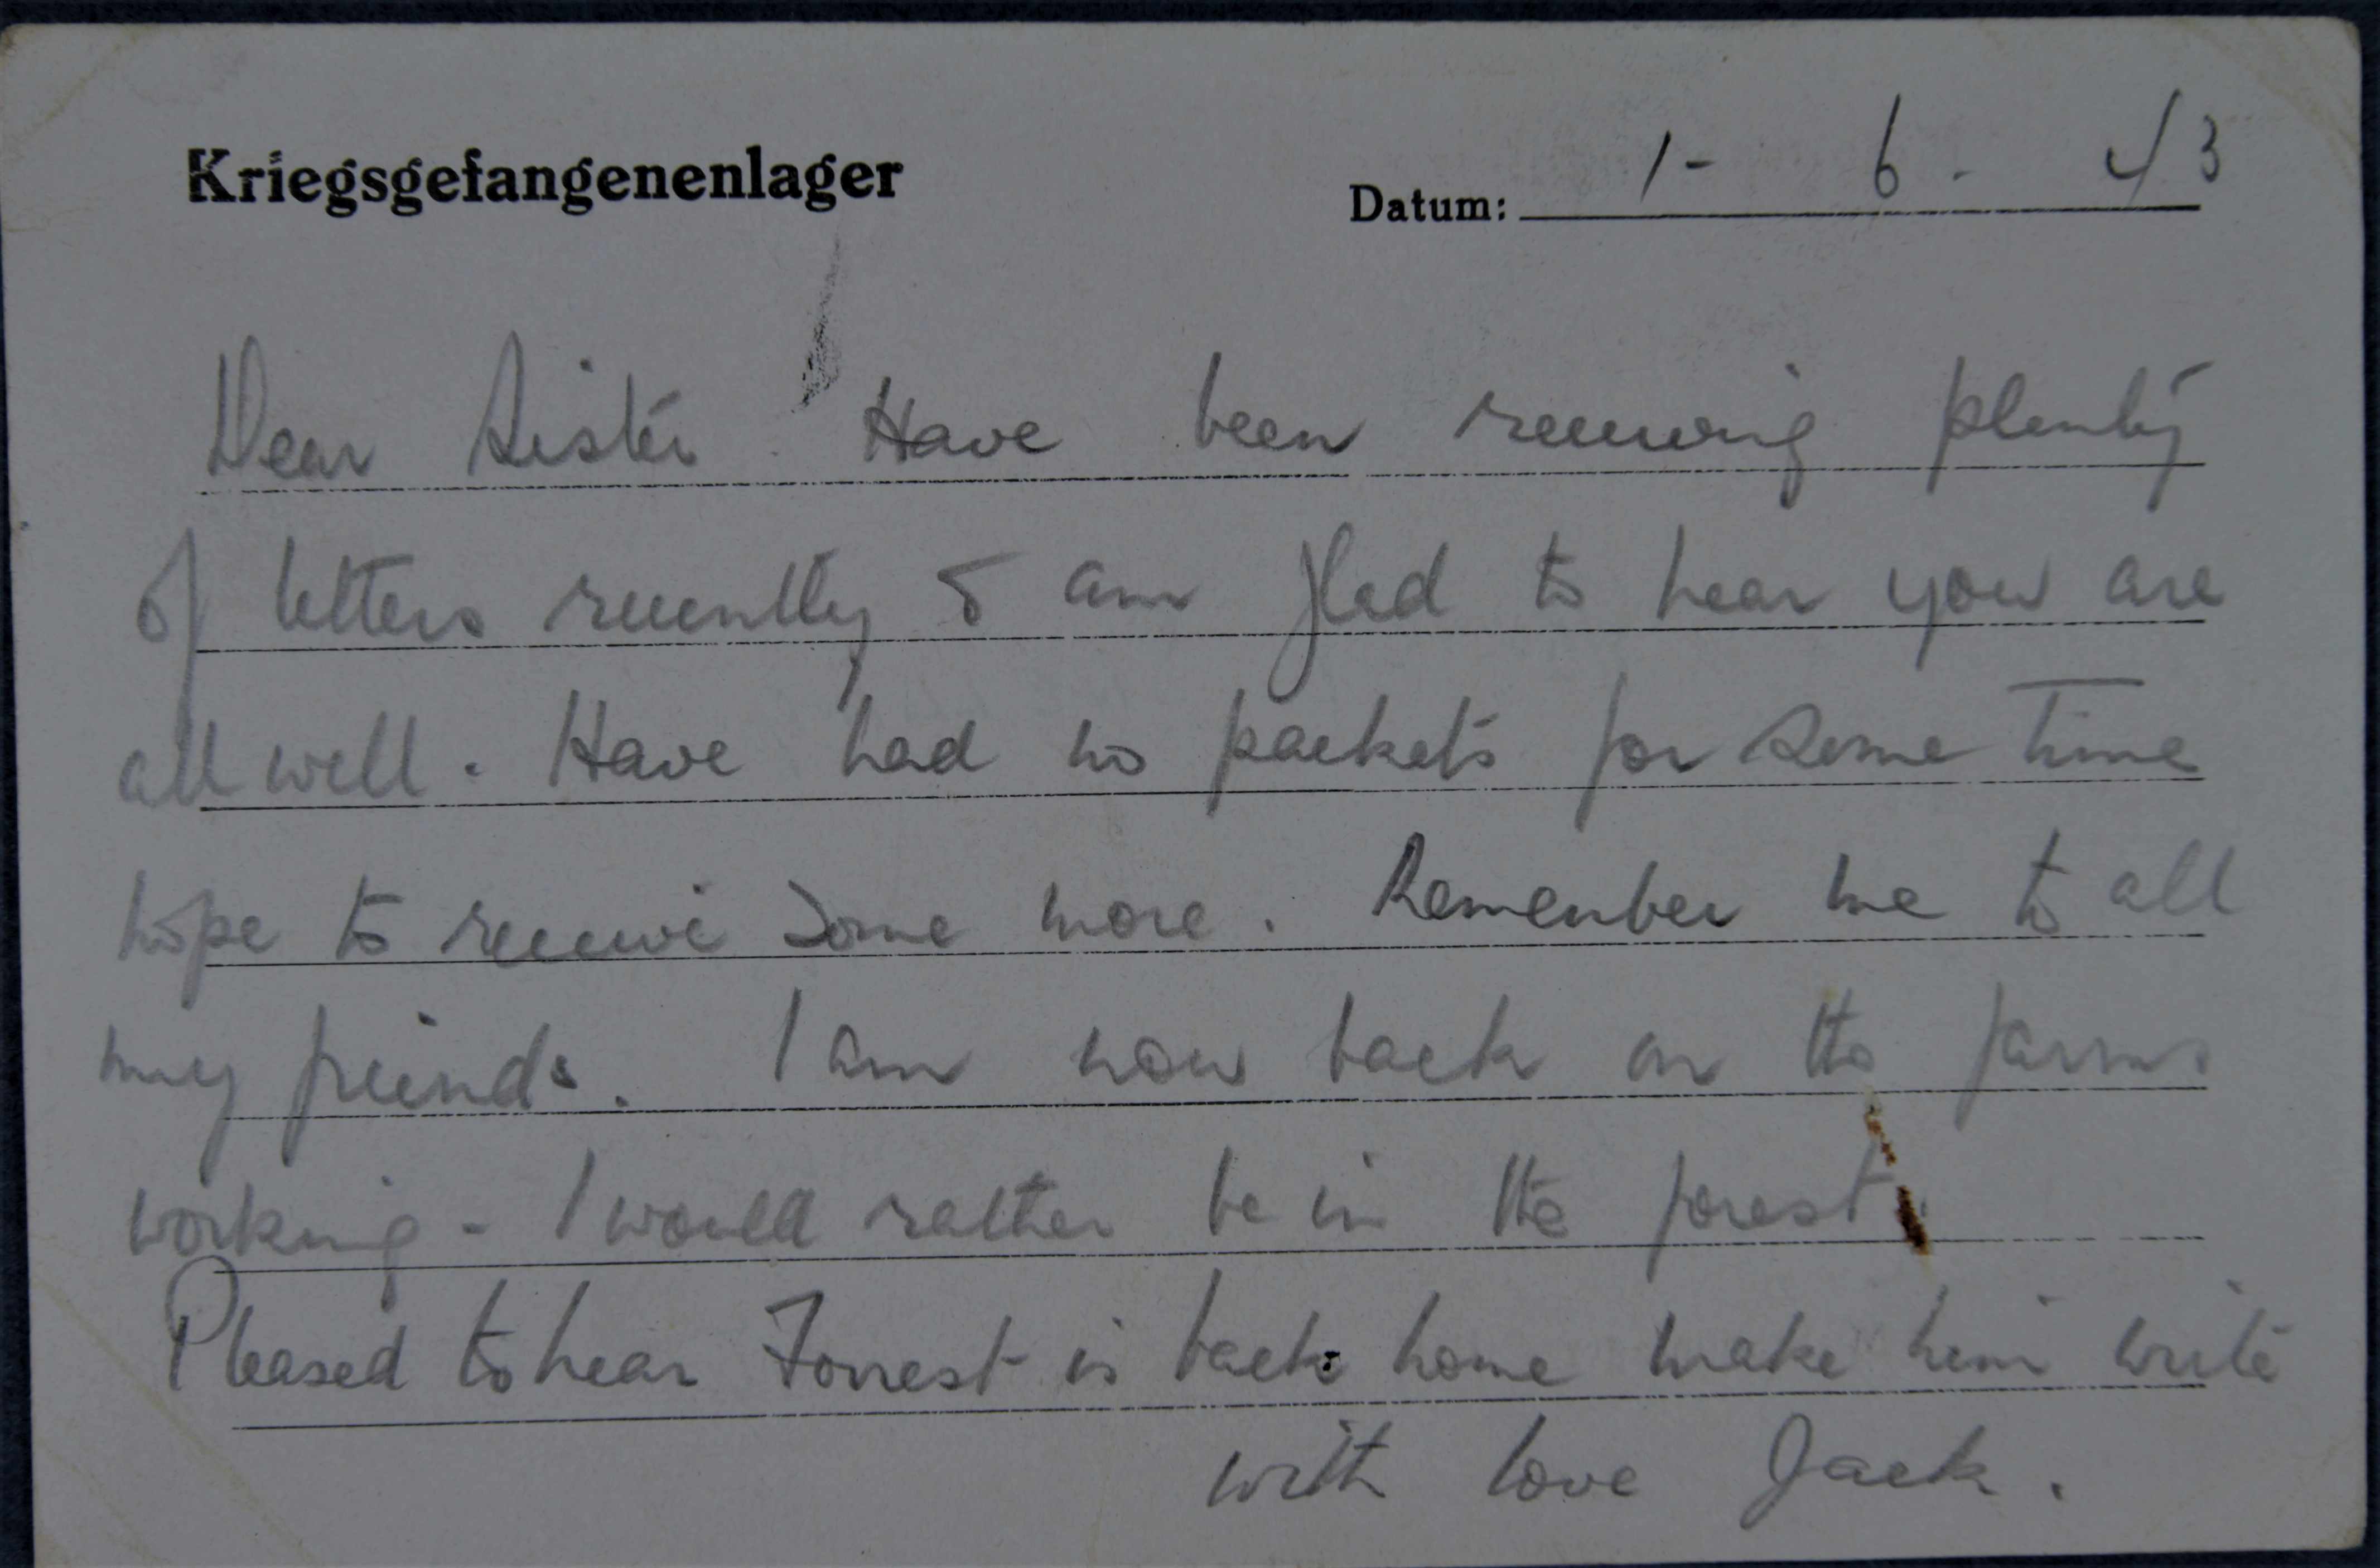 Kriegsgefangenenlager Datum: 1 - 6 - 43
Dear Sister. Have been receiving plenty
of letters recently & am glad to hear you are
all well. Have had no packets for some time
hope to receive some more. Remember me to all
my friends. I am now back on the farms
working - I would rather be in the forest.
Pleased to hear Forrest is back home make him write
with love Jack.